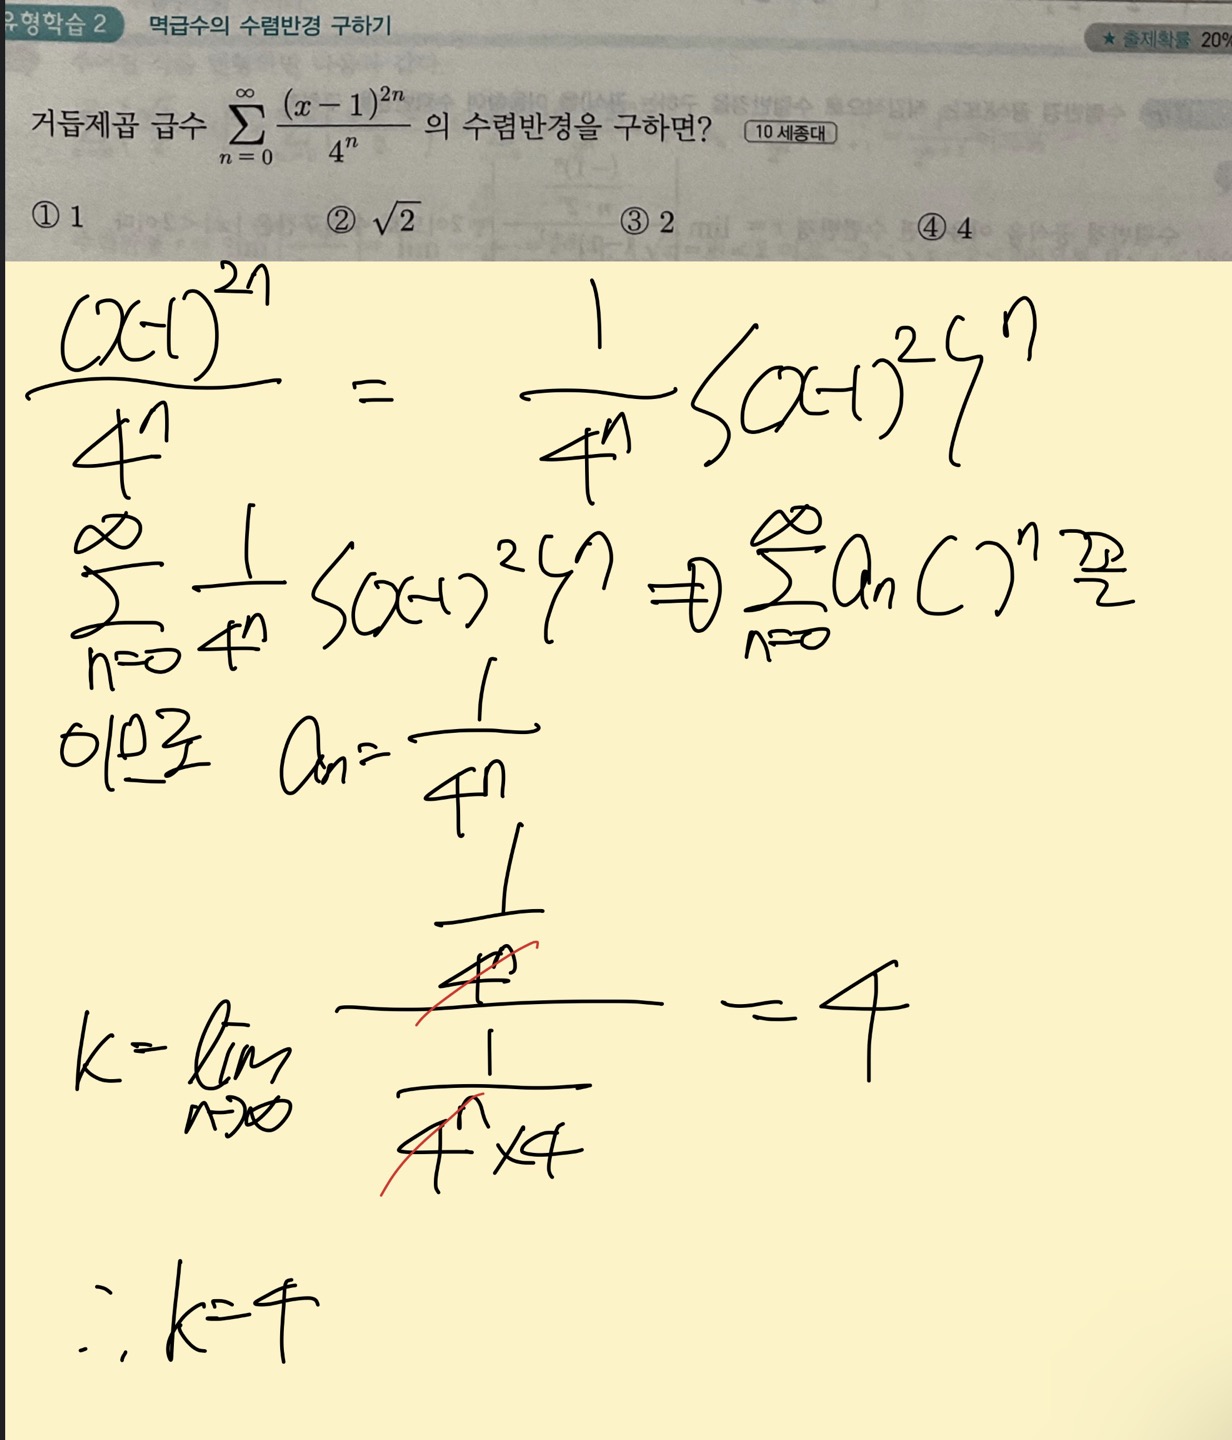 유형학습 2 멱급수의 수렴반경 구하기
★ 출제확률 20%
거듭제곱 급수 \sum_{n=0}^{\infty} \frac{(x-1)^{2n}}{4^n} 의 수렴반경을 구하면? 10 세종대
① 1 ② √2 ③ 2 ④ 4
\frac{(x-1)^{2n}}{4^n} = \frac{1}{4^n} {(x-1)^2}^n
\sum_{n=0}^{\infty} \frac{1}{4^n} {(x-1)^2}^n ⇒ \sum_{n=0}^{\infty} a_n ( )^n 꼴
이므로 a_n = \frac{1}{4^n}
k = \lim_{n→∞} \frac{\frac{1}{4^n}}{\frac{1}{4^n×4}} = 4
∴ k=4